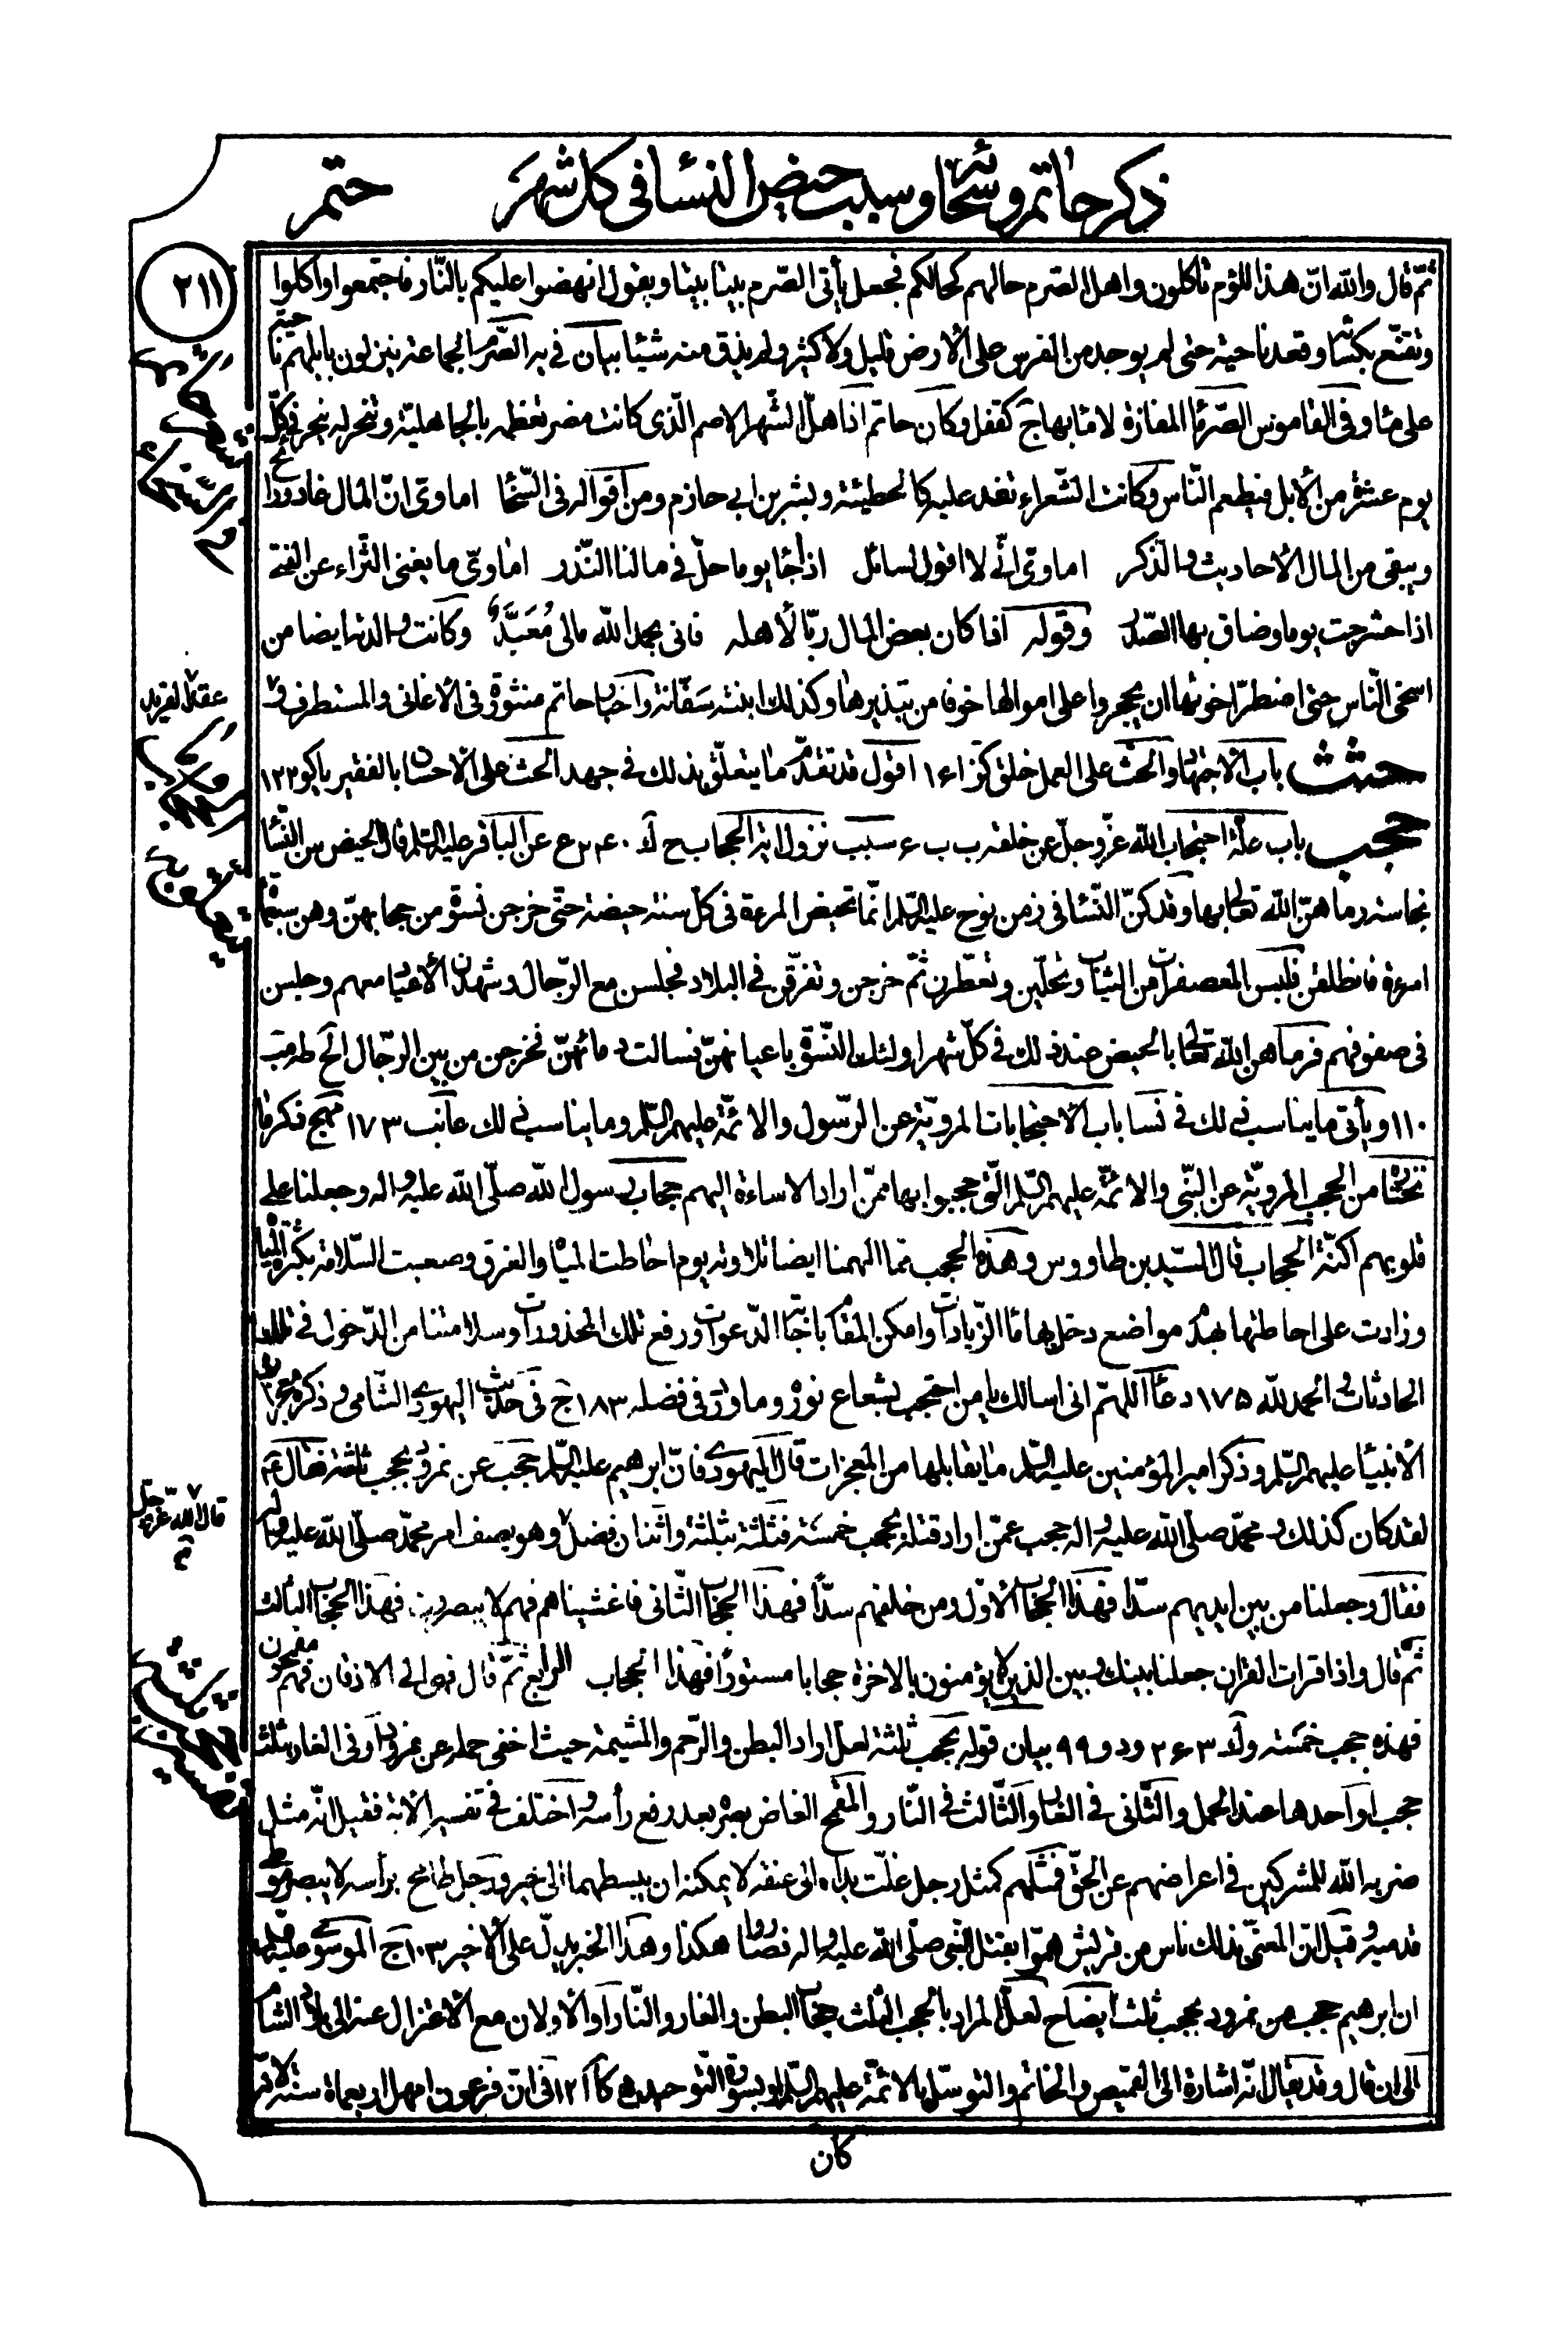 ذكر حاتم وسخائه وسبب حيض النساء في كل شهر حتم
٢١١
ثمّ قال والله انّ هذا للؤم تاكلون واهل الصّرم حالهم كحالكم فجعل يأتى الصّرم بيتا بيتا ويقول انهضوا عليكم بالنّار فاجتمعوا واكلوا
وتقنّع بكسائه وقعد ناحية حتى لم يوجد من الفرس على الأرض قليل ولا كثير ولم يذق منه شيئا بيان في يه الصّرم الجماعة ينزلون بابلهم ناحية
على ماء وفى القاموس الصّرماء المفازة لا ماء بها ج كقفل وكان حاتم اذا هلّ الشّهر الاصم الّذى كانت مضر تعظمه بالجاهليّة وتنحر له ينحر في كلّ
يوم عشرة من الأبل فيطعم النّاس وكانت الشّعراء تفد عليه كالحطيئة وبشر بن ابي حازم ومن اقواله فى السّخاء اماوىّ انّ المال غاد ورائح
ويبقى من المال الأحاديث والذكر اماوىّ انّى لا اقول لسائل اذا جاء يوما حلّ في مالنا النّذر اماوىّ ما يغنى الثّراء عن الفتى
اذا حشرجت يوما وضاق بها الصّدر وقوله اذا كان بعض المال ربّا لأهله فانى بحمد الله مالى مُعَبَّدٌ وكانت والدته ايضا من
اسخى النّاس حتى اضطرّ اخوتها ان يحجروا على اموالها خوفا من تبذيرها وكذلك ابنته سَفّانة واخبار حاتم منثورة فى الأغانى والمستطرف و
عقد الفريد
حثث باب الاجتهاد والحث على العمل خلق كز ١٤١ اقول قد تقدّم ما يتعلّق بذلك في جهد الحث على الأحسان بالفقير با كو ١٢٢
حجب باب علّة احتجاب الله عزّوجلّ عن خلقه ب ب ٤ سبب نزول اية الحجاب ح لا ٢٤٠ ع عن الباقر عليه السّلام قال الحيض من النّساء
نجاسة رماهنّ الله تعالى بها وقد كنّ النّساء فى زمن نوح عليه السّلام انّما تحيض المرءة فى كلّ سنة حيضة حتّى خرجن نسوة من حجابهنّ وهن سبعمأة
امرءة فانطلقن فلبس المعصفرات من الثياب وتحلّين وتعطّرن ثمّ خرجن وتفرّقن في البلاد فجلسن مع الرّجال وشهدن الأعياد معهم وجلسن
فى صفوفهم فرماهن الله تعالى بالحيض عند ذلك في كلّ شهر اولئك النّسوة باعيانهنّ فسالت دمائهنّ فخرجن من بين الرّجال الخ طه قب
١١٠ ويأتى ما يناسب ذلك في نسا باب الاحتجابات المرويّة عن الرّسول والائمّة عليهم السّلام وما يناسب ذلك عا نب ١٧٣ مهج ذكر ما
نختاره من الحجب المرويّة عن النّبى والائمّة عليهم السّلام الّتى حجبوا بها ممّن اراد الاساءة اليهم حجاب رسول الله صلّى الله عليه واله وجعلنا على
قلوبهم اكنّة الحجاب قال السّيد بن طاووس وهذه الحجب ممّا الهمنا ايضا تلاوته يوم احاطت المياه والغرق وصعبت السّلامة بكثرة المياه
وزادت على احاطتها بهدم مواضع دخل بها ماء الزّيادات وامكن المقام باجابة الدّعوات ورفع تلك المحذورات وسلامتنا من الدّخول في تلك
الحادثات والحمد لله ١٧٥ دعاء اللهمّ انى اسالك يا من احتجب بشعاع نوره وما ورد فى فضله ١٨٣ ج فى حديث اليهودى الشّامى وذكره معجزات
الأنبياء عليهم السّلام وذكر امير المؤمنين عليه السّلام ما يقابلها من المعجزات قال اليهودى فانّ ابرهيم عليه السّلام حجب عن نمرود بحجب ثلثة فقال ع
لقد كان كذلك ومحمّد صلّى الله عليه واله حجب عمّن اراد قتله بحجب خمسة فثلثة بثلثة واثنان فضل وهو يصف امر محمّد صلّى الله عليه واله
قال الله عزّوجلّ
فقال وجعلنا من بين ايديهم سدّا فهذا الحجاب الأوّل ومن خلفهم سدّا فهذا الحجاب الثّانى فاغشيناهم فهم لا يبصرون فهذا الحجاب الثالث
ثمّ قال واذا قرات القران جعلنا بينك وبين الذين لا يؤمنون بالاخرة حجابا مستورًا فهذا الحجاب الرابع ثمّ قال فهى الى الاذقان فهم مقمحون
فهذه حجب خمسة ولا ٢٤٣ ود و ٩٩ بيان قوله بحجب ثلثة لعل اراد البطن والرّحم والمشيمة حيث اخفى حمله عن نمرود او فى الغار بثلث
حجب او احدها عند الحمل والثّانى في الغار والثّالث في النّار والمقمح الغاض بصره بعد رفع رأسه واختلف في تفسير الاية فقيل انّه مثل
ضربه الله للمشركين في اعراضهم عن الحقّ فمثلهم كمثل رجل غلّت يداه الى عنقه لا يمكنه ان يبسطهما الى خير ورجل طامح برأسه لا يبصر موطئ
قدميه وقيل انّ المعنىّ بذلك ناس من قريش همّوا بقتل النّبى صلّى الله عليه واله فصاروا هكذا وهذا الخبر يدلّ على الأخير ١٠٣ ج الموسوى عليهم
ان ابرهيم حجب من نمرود بحجب ثلث ايضاح لعلّ المراد بالحجب الثّلث حجاب البطن والغار والنّار او الأولان مع الاعتزال عنه الى بلاد الشام
الى ان قال وقد يقال انّه اشارة الى القميص والخاتم والتوسّل بالائمّة عليهم السّلام او بسورة التوحيد كا آ ١٢ فى انّ فرعون امهل اربعمأة سنة لانّه
كان